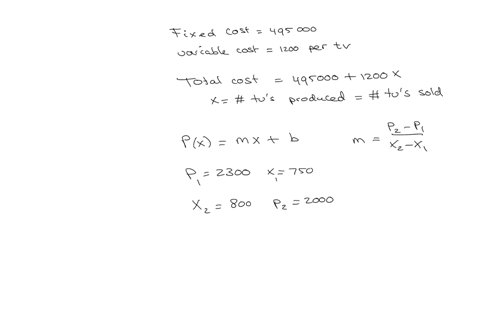 Fixed cost = 495000
variable cost = 1200 per tv
Total cost = 495000 + 1200 x
x = # tv's produced = # tv's sold
P(x) = mx + b m = (P₂ - P₁)/(x₂ - x₁)
P₁ = 2300 x₁ = 750
x₂ = 800 P₂ = 2000